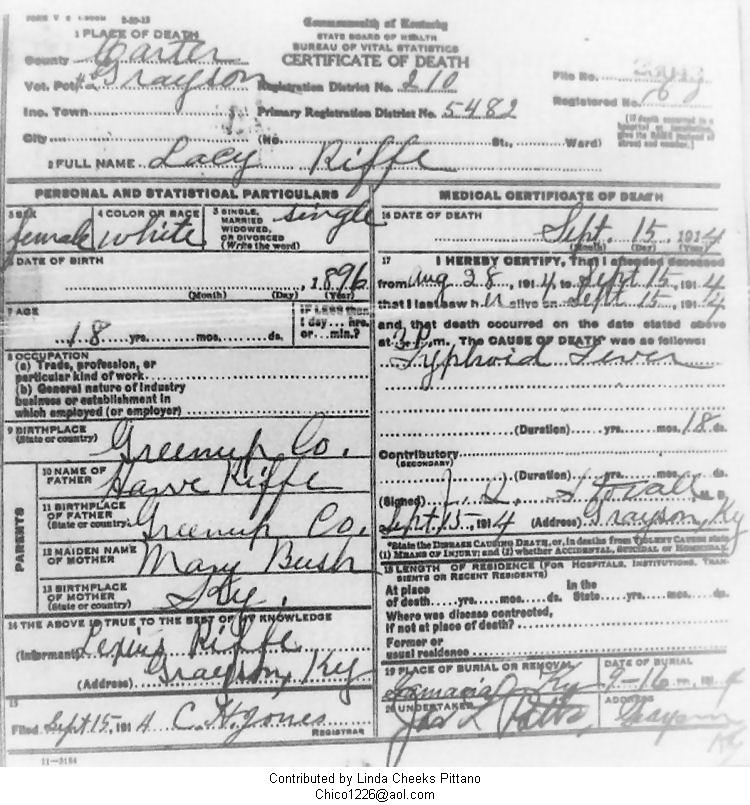 Commonwealth of Kentucky
STATE BOARD OF HEALTH
BUREAU OF VITAL STATISTICS
CERTIFICATE OF DEATH
1 PLACE OF DEATH
County Carter
Vot. Pct. #2 Grayson Registration District No. 210 File No.
Inc. Town Primary Registration District No. 5482 Registered No.
City (No. St., Ward)
[If death occurred in a hospital or institution, give its NAME instead of street and number.]
2 FULL NAME Lacy Riffe
PERSONAL AND STATISTICAL PARTICULARS
3 SEX female
4 COLOR OR RACE white
5 SINGLE, MARRIED WIDOWED, OR DIVORCED (Write the word) single
6 DATE OF BIRTH
, 1896
(Month) (Day) (Year)
7 AGE IF LESS than
18 yrs. mos. ds. 1 day... hrs. or... min.?
8 OCCUPATION
(a) Trade, profession, or
particular kind of work
(b) General nature of industry
business or establishment in
which employed (or employer)
9 BIRTHPLACE
(State or country) Greenup Co.
PARENTS
10 NAME OF FATHER Harve Riffe
11 BIRTHPLACE OF FATHER (State or country) Greenup Co.
12 MAIDEN NAME OF MOTHER Mary Bush
13 BIRTHPLACE OF MOTHER (State or country) Ky.
14 THE ABOVE IS TRUE TO THE BEST OF MY KNOWLEDGE
(Informant) Riffe
(Address) Grayson, Ky
15
Filed Sept 15, 1914 C. H. Jones
REGISTRAR
11-3184
MEDICAL CERTIFICATE OF DEATH
16 DATE OF DEATH
Sept. 15, 1914
(Month) (Day) (Year)
17 I HEREBY CERTIFY, That I attended deceased
from Aug 28, 1914, to Sept 15, 1914
that I last saw her alive on Sept 15, 1914
and that death occurred on the date stated above
at 3 P. m. The CAUSE OF DEATH* was as follows:
Typhoid Fever
(Duration) yrs. mos. 18 ds.
Contributory
(SECONDARY)
(Duration) yrs. mos. ds.
(Signed) J. Q. Stovall M. D.
Sept 15, 1914 (Address) Grayson, Ky
*State the DISEASE CAUSING DEATH, or, in deaths from VIOLENT CAUSES state
(1) MEANS OF INJURY; and (2) whether ACCIDENTAL, SUICIDAL or HOMICIDAL.
18 LENGTH OF RESIDENCE (FOR HOSPITALS, INSTITUTIONS, TRANSIENTS OR RECENT RESIDENTS)
At place In the
of death yrs. mos. ds. State yrs. mos. ds.
Where was disease contracted,
if not at place of death?
Former or
usual residence
19 PLACE OF BURIAL OR REMOVAL DATE OF BURIAL
Ky 9-16 1914
20 UNDERTAKER ADDRESS
Grayson
Ky
Contributed by Linda Cheeks Pittano
Chico1226@aol.com